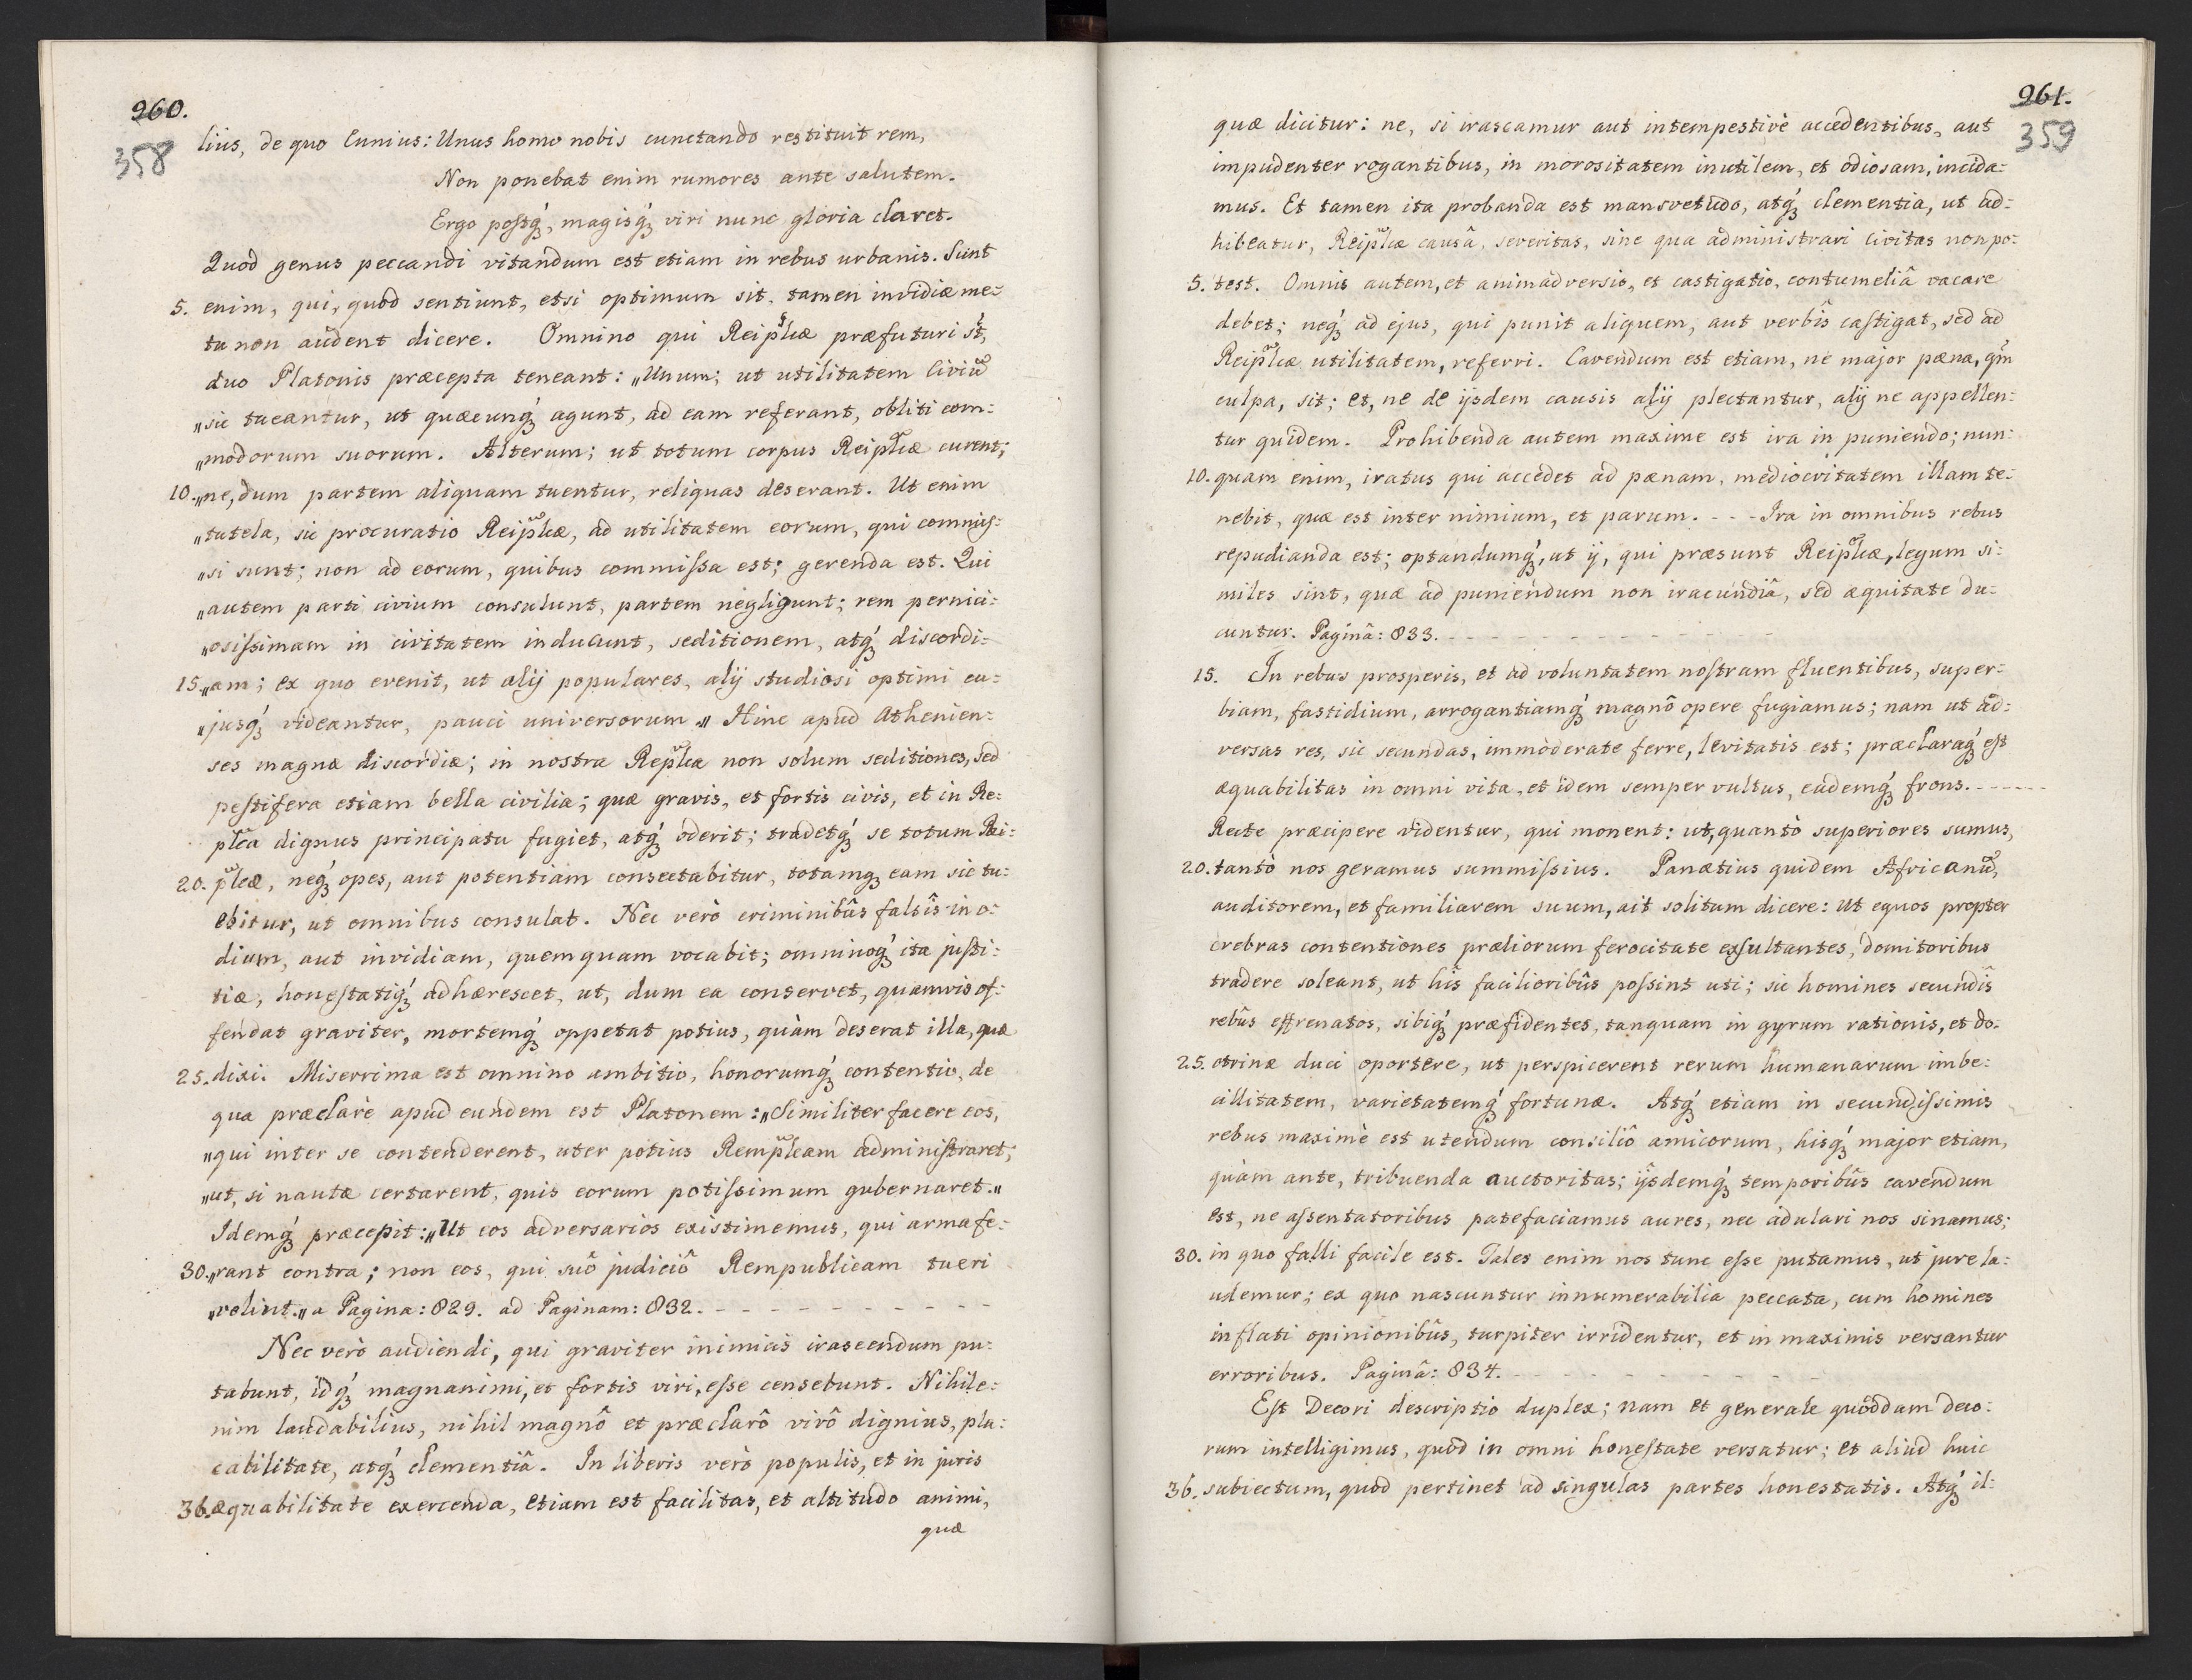 260.
358
lius, de quo Eunius: Unus homo nobis cunctando restituit rem,
Non ponebat enim rumores ante salutem.
Ergo postq́ȝ, magisq́ȝ viri nunc gloria claret.
Quod genus peccandi vitandum est etiam in rebus urbanis. Sunt
5. enim, qui, quod sentiunt, etsi optimum sit, tamen invidiæ me=
tu non audent dicere. Omnino qui Reiplicæ præfuturi st̃,
duo Platonis præcepta teneant: „Unum; ut utilitatem Civiũ
„sic tueantur, ut quæcunq́ȝ agunt, ad eam referant, obliti com=
„modorum suorum. Alterum; ut totum corpus Reiplicæ curent;
10. „ne, dum partem aliquam tuentur, reliquas deserant. Ut enim
„tutela, sic procuratio Reiplicæ, ad utilitatem eorum, qui commis=
„si sunt; non ad eorum, quibus commissa est; gerenda est. Qui
„autem parti civium consulunt, partem negligunt; rem pernici=
„osissimam in civitatem inducunt, seditionem, atq́ȝ discordi=
15. „am; ex quo evenit, ut alij populares, alij studiosi optimi cu=
„jusq́ȝ videantur, pauci universorum.„ Hinc apud Athenien=
ses magnæ discordiæ; in nostra Replica non solum seditiones, sed
pestifera etiam bella civilia; quæ gravis, et fortis civis, et in Re=
plica dignus principatu fugiet, atq́ȝ oderit; tradetq́ȝ se totum Rei=
20. plicæ, neq́ȝ opes, aut potentiam consectabitur, totamqȝ eam sic tu=
ebitur, ut omnibus consulat. Nec verò criminibûs falsîs in o=
dium, aut invidiam, quemquam vocabit; omninoq́ȝ ita justi=
tiæ, honestatiq́ȝ adhærescet, ut, dum ea conservet, quamvis of=
fendat graviter, mortemq́ȝ oppetat potius, quàm deserat illa, quæ
25. dixi. Miserrima est omnino ambitio, honorumq́ȝ contentio, de
qua præclarè apud eundem est Platonem: „Similiter facere eos,
„qui inter se contenderent, uter potius Remplicam administraret;
„ut, si nautæ certarent, quis eorum potissimum gubernaret.„
Idemq́ȝ præcepit: „Ut eos adversarios existimemus, qui arma fe=
30. „rant contra; non eos, qui suô judiciô Rempublicam tueri
„velint.„ a Pagina: 829. ad Paginam: 832. - - - - - - - - - -
Nec verò audiendi, qui graviter inimicis irascendum pu=
tabunt, idq́ȝ magnanimi, et fortis viri, esse censebunt. Nihil e=
nim laudabilius, nihil magnô et præclarô virô dignius, pla=
cabilitate, atq́ȝ clementiâ. In liberis verò populis, et in juris
36. æquabilitate exercenda, etiam est facilitas, et altitudo animi,
quæ
261.
359
quæ dicitur: ne, si irascamur aut intempestivè accedentibus, aut
impudenter rogantibus, in morositatem inutilem, et odiosam, incida=
mus. Et tamen ita probanda est mansvetudo, atq́ȝ clementia, ut ad=
hibeatur, Reiplicæ causâ, severitas, sine qua administrari Civitas non po=
5. test. Omnis autem, et animadversio, et castigatio, contumeliâ vacare
debet; neq́ȝ ad ejus, qui punit aliquem, aut verbîs castigat, sed ad
Reiplicæ utilitatem, referri. Cavendum est etiam, ne major pæna, qm̃
culpa, sit; et, ne de ijsdem causis alij plectantur, alij ne appellen=
tur quidem. Prohibenda autem maxime est ira in puniendo; nun=
10. quam enim, iratus qui accedet ad pænam, mediocritatem illam te=
nebit, quæ est inter nimium, et parum. - - - Ira in omnibus rebus
repudianda est; optandumq́ȝ, ut ij, qui præsunt Reiplicæ, legum si=
miles sint, quæ ad puniendum non iracundiâ, sed æquitate du=
cuntur. Paginâ: 833. - - - - - - - - - - - - -
15. In rebus prosperis, et ad voluntatem nostram fluentibus, super=
biam, fastidium, arrogantiamq́ȝ magnô opere fugiamus; nam ut ad=
versas res, sic secundas, immoderate ferre, levitatis est; præclaraq́ȝ est
æquabilitas in omni vita, et idem semper vultus, eademq́ȝ frons. - - - - - -
Recte præcipere videntur, qui monent: ut, quantò superiores sumus,
20. tantò nos geramus summissius. Panætius quidem Africanũ,
auditorem, et familiarem suum, ait solitum dicere: Ut equos propter
crebras contentiones præliorum ferocitate exsultantes, domitoribus
tradere soleant, ut hîs facilioribûs possint uti; sic homines secundîs
rebûs effrenatos, sibiq́ȝ præfidentes, tanquam in gyrum rationis, et do=
25. ctrinæ duci oportere, ut perspicerent rerum humanarum imbe=
cillitatem, varietatemq́ȝ fortunæ. Atq́ȝ etiam in secundissimis
rebus maximè est utendum consiliô amicorum, hisq́ȝ major etiam,
quàm ante, tribuenda auctoritas; ijsdemq́ȝ temporibûs cavendum
est, ne assentatoribus patefaciamus aures, nec adulari nos sinamus;
30. in quo falli facile est. Tales enim nos tunc esse putamus, ut jure la=
udemur; ex quo nascuntur innumerabilia peccata, cum homines
inflati opinionibûs, turpiter irridentur, et in maximis versantur
erroribus. Paginâ: 834. - - - - - - - - - - -
Est Decori descriptio duplex; nam et generale quoddam deco=
rum intelligimus, quod in omni honestate versatur; et aliud huic
36. subiectum, quod pertinet ad singulas partes honestatis. Atq́ȝ il=